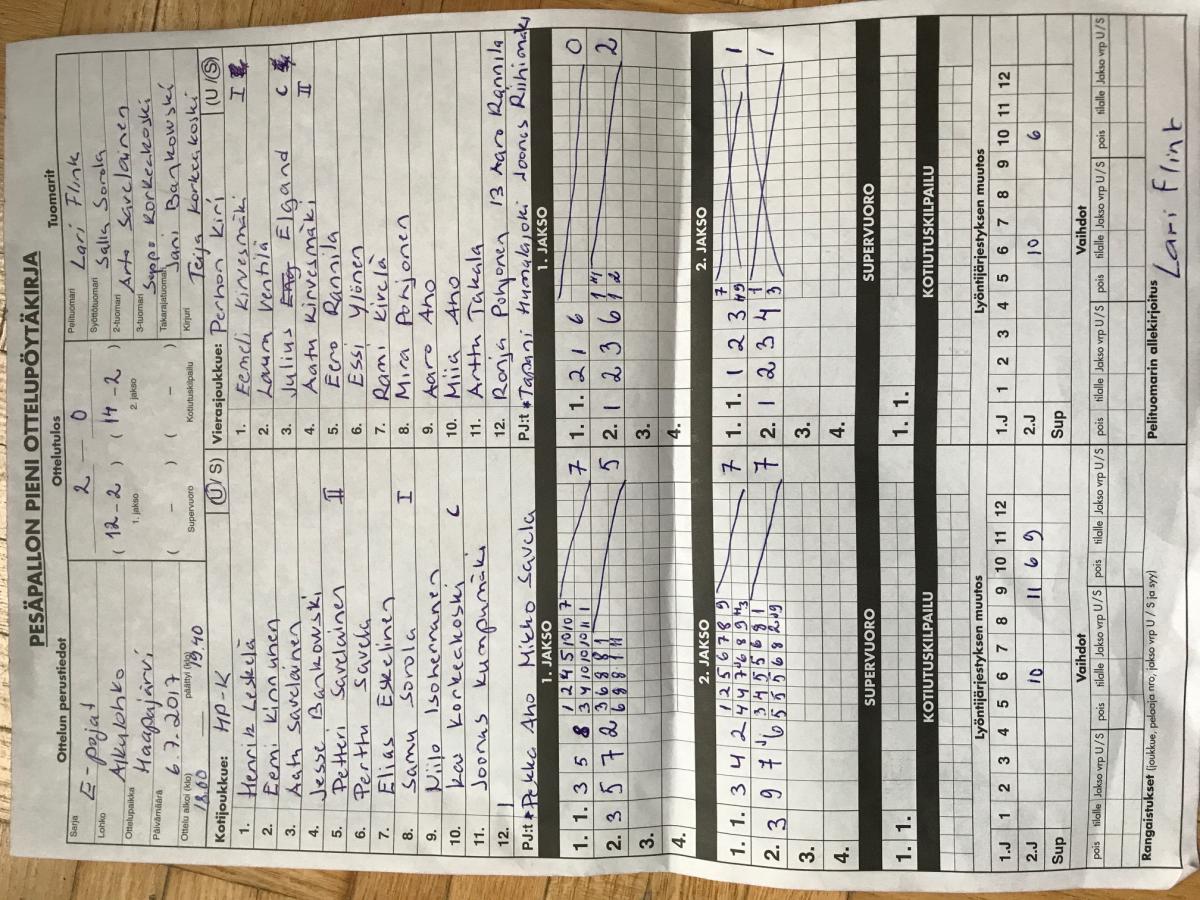 PESÄPALLON PIENI OTTELUPÖYTÄKIRJA
Ottelun perustiedot
Sarja E-pojat
Lohko Alkulohko
Ottelupaikka Haapajärvi
Päivämäärä 6.7.2017
Ottelu alkoi (klo) 18.00 päättyi (klo) 19.40
Ottelutulos
2 - 0
(12-2) (14-2)
1. jakso 2. jakso
( - ) ( - )
Supervuoro Kotiutuskilpailu
Tuomarit
Pelituomari Lari Flink
Syöttötuomari Salla Sorola
2-tuomari Arto Savelainen
3-tuomari Seppo Korkeakoski
Takarajatuomari Jani Bankowski
Kirjuri Teija Korkeakoski
Kotijoukkue: HP-K (U/S)
1. Henrik Leskelä
2. Eemi Kinnunen
3. Aatu Savelainen
4. Jesse Bankowski
5. Petteri Savelainen II
6. Perttu Savela
7. Elias Eskelinen
8. Samu Sorola I
9. Niilo Isohemmanen
10. Kai Korkeakoski C
11. Joonas Kumpumäki
12.
PJ:t * Pekka Aho Mikko Savela
Vierasjoukkue: Perhon Kiri (U/S)
1. Eemeli Kinvesmäki I
2. Lauri Ventilä
3. Julius Elgand C
4. Aatu Kirvesmäki II
5. Eero Rannila
6. Essi Ylönen
7. Rami Kivelä
8. Mira Pohjonen
9. Aaro Aho
10. Miia Aho
11. Arttu Takala
12. Ronja Pohjonen 13 Aaro Rannila
PJ:t * Tapani Humalajoki Joonas Riihimäki
1. JAKSO
1. 1. 3 5 8 7
2. 3 5 7 2 5
3.
4.
1. JAKSO
1. 1. 2 1 6 0
2. 1 2 3 6 2
3.
4.
2. JAKSO
1. 1. 3 4 2 7
2. 3 9 7 7
3.
4.
2. JAKSO
1. 1. 1 2 3 1
2. 1 2 3 4 1
3.
4.
SUPERVUORO
1. 1.
SUPERVUORO
1. 1.
KOTIUTUSKILPAILU
KOTIUTUSKILPAILU
Lyöntijärjestyksen muutos
1.J 1 2 3 4 5 6 7 8 9 10 11 12
2.J 10 11 6 9
Sup
Lyöntijärjestyksen muutos
1.J 1 2 3 4 5 6 7 8 9 10 11 12
2.J 10 6
Sup
Vaihdot
pois tilalle Jakso vrp U/S pois tilalle Jakso vrp U/S pois tilalle Jakso vrp U/S
Vaihdot
pois tilalle Jakso vrp U/S pois tilalle Jakso vrp U/S pois tilalle Jakso vrp U/S
Rangaistukset (joukkue, pelaaja nro, jakso vrp U / S ja syy)
Pelituomarin allekirjoitus
Lari Flink